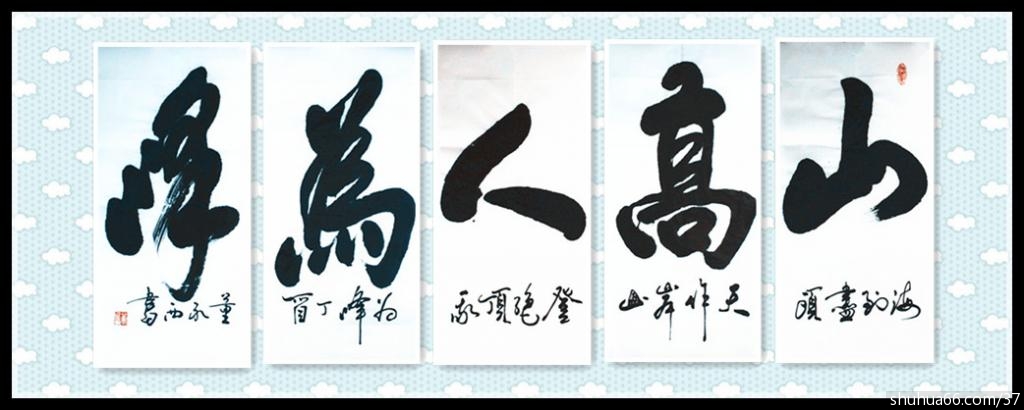 山高人為峰
海到盡頭
天作岸山
登絕頂我
為峰丁酉
董 西書
shuhua66.com/37